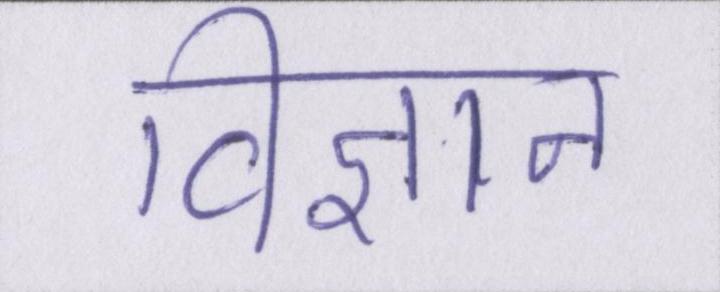 विज्ञान